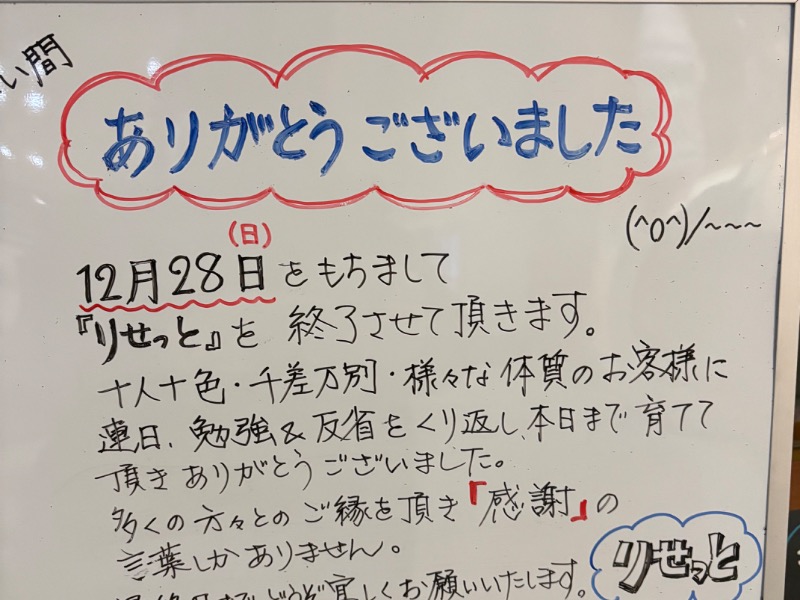 い間
ありがとうございました
(^O^)/~~~
(日)
12月28日をもちまして
『りせっと』を終了させて頂きます。
十人十色・千差万別・様々な体質のお客様に
連日、勉強&反省をくり返し、本日まで育てて
頂きありがとうございました。
多くの方々とのご縁を頂き『感謝』の
言葉しかありません。
どうぞ宜しくお願いいたします。
りせっと